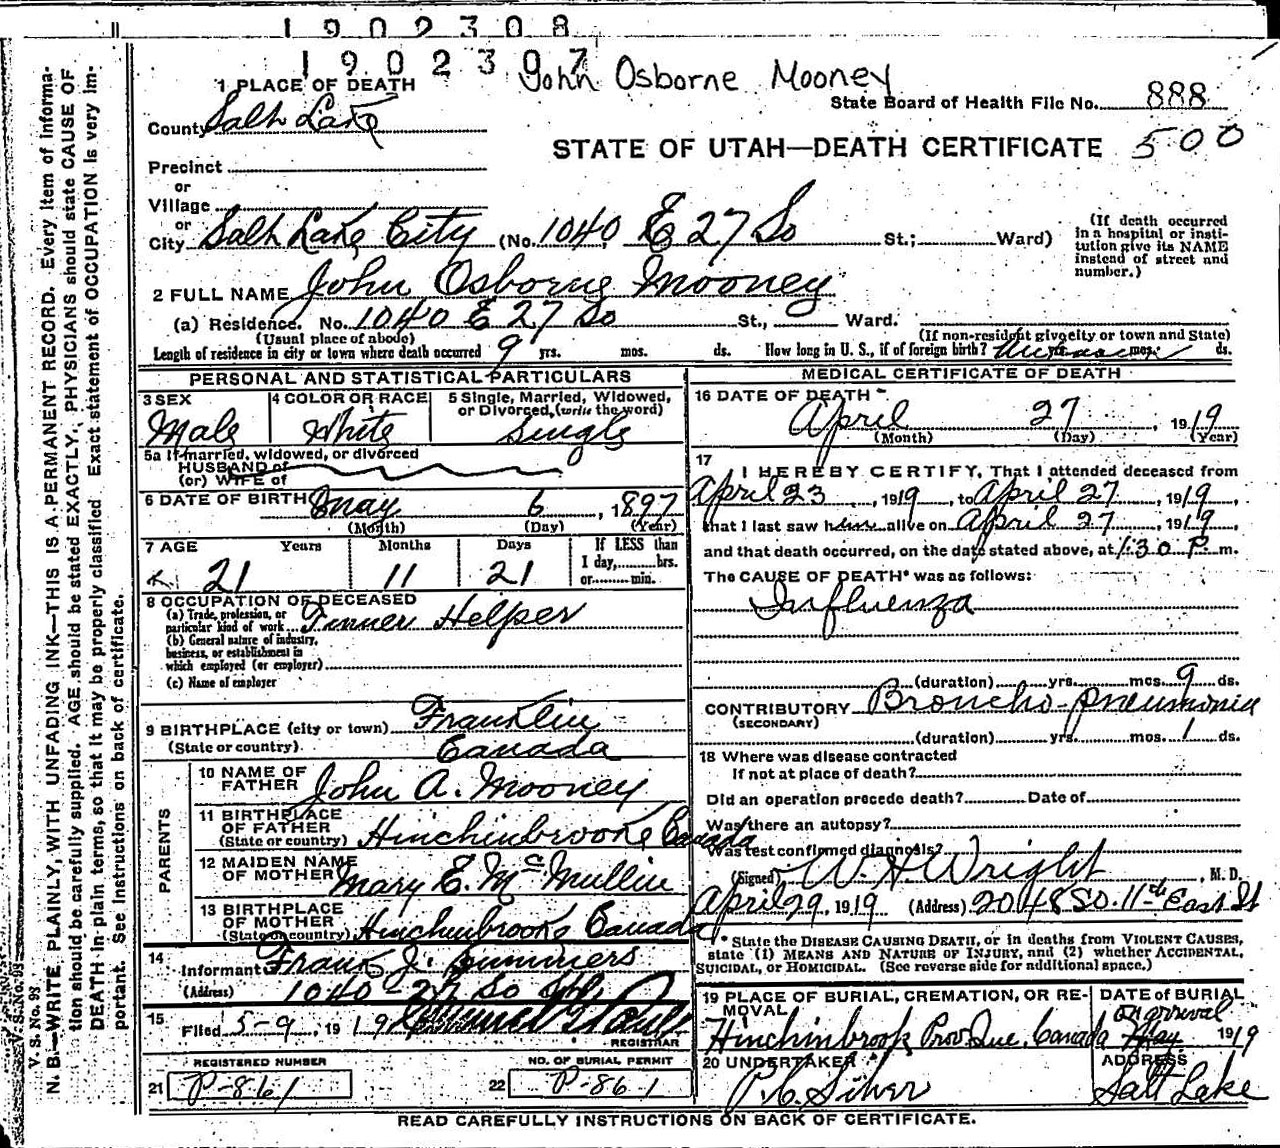 1902308
1902307
John Osborne Mooney
1 PLACE OF DEATH
State Board of Health File No. 888
County Salt Lake
STATE OF UTAH—DEATH CERTIFICATE 500
Precinct
or
Village
or
City Salt Lake City (No. 1040 E 27 So St.; Ward)
(If death occurred
in a hospital or insti-
tution give its NAME
instead of street and
number.)
2 FULL NAME John Osborne Mooney
(a) Residence. No. 1040 E 27 So St., Ward.
(Usual place of abode)
(If non-resident give city or town and State)
Length of residence in city or town where death occurred 9 yrs. mos. ds. How long in U. S., if of foreign birth? yrs. mos. ds.
PERSONAL AND STATISTICAL PARTICULARS
3 SEX
Male
4 COLOR OR RACE
White
5 Single, Married, Widowed,
or Divorced, (write the word)
Single
5a If married, widowed, or divorced
HUSBAND of
(or) WIFE of
6 DATE OF BIRTH May 6, 1897
(Month) (Day) (Year)
7 AGE Years Months Days
21 11 21
If LESS than
1 day, hrs.
or min.
8 OCCUPATION OF DECEASED
(a) Trade, profession, or
particular kind of work Tinner Helper
(b) General nature of industry,
business, or establishment in
which employed (or employer)
(c) Name of employer
9 BIRTHPLACE (city or town) Franklin
(State or country) Canada
PARENTS
10 NAME OF
FATHER John A. Mooney
11 BIRTHPLACE
OF FATHER
(State or country) Hinchinbrooke Canada
12 MAIDEN NAME
OF MOTHER Mary E. McMullin
13 BIRTHPLACE
OF MOTHER
(State or country) Hinchinbrooke Canada
14
Informant Frank J. Summers
(Address) 1040 - 27 So
15
Filed 5-9, 1919
REGISTRAR
REGISTERED NUMBER
21 P-861
NO. OF BURIAL PERMIT
22 P-861
MEDICAL CERTIFICATE OF DEATH
16 DATE OF DEATH
April 27, 1919
(Month) (Day) (Year)
17
I HEREBY CERTIFY, That I attended deceased from
April 23, 1919, to April 27, 1919,
that I last saw him alive on April 27, 1919,
and that death occurred, on the date stated above, at 1:30 P. m.
The CAUSE OF DEATH* was as follows:
Influenza
(duration) yrs. mos. 9 ds.
CONTRIBUTORY Broncho-pneumonia
(SECONDARY)
(duration) yrs. mos. 1 ds.
18 Where was disease contracted
If not at place of death?
Did an operation precede death? Date of
Was there an autopsy?
Was test confirmed diagnosis?
(Signed) W. H. Wright, M. D.
April 29, 1919 (Address) 2048 So. 11th East St
* State the DISEASE CAUSING DEATH, or in deaths from VIOLENT CAUSES,
state (1) MEANS AND NATURE OF INJURY, and (2) whether ACCIDENTAL,
SUICIDAL, or HOMICIDAL. (See reverse side for additional space.)
19 PLACE OF BURIAL, CREMATION, OR RE-
MOVAL
Hinchinbrook Prov. Que. Canada
DATE of BURIAL
on arrival
May 1919
20 UNDERTAKER
ADDRESS
Salt Lake
READ CAREFULLY INSTRUCTIONS ON BACK OF CERTIFICATE.
V. S. No. 93
N. B.—WRITE PLAINLY, WITH UNFADING INK—THIS IS A PERMANENT RECORD. Every item of informa-
tion should be carefully supplied. AGE should be stated EXACTLY. PHYSICIANS should state CAUSE OF
DEATH in plain terms, so that it may be properly classified. Exact statement of OCCUPATION is very im-
portant. See instructions on back of certificate.